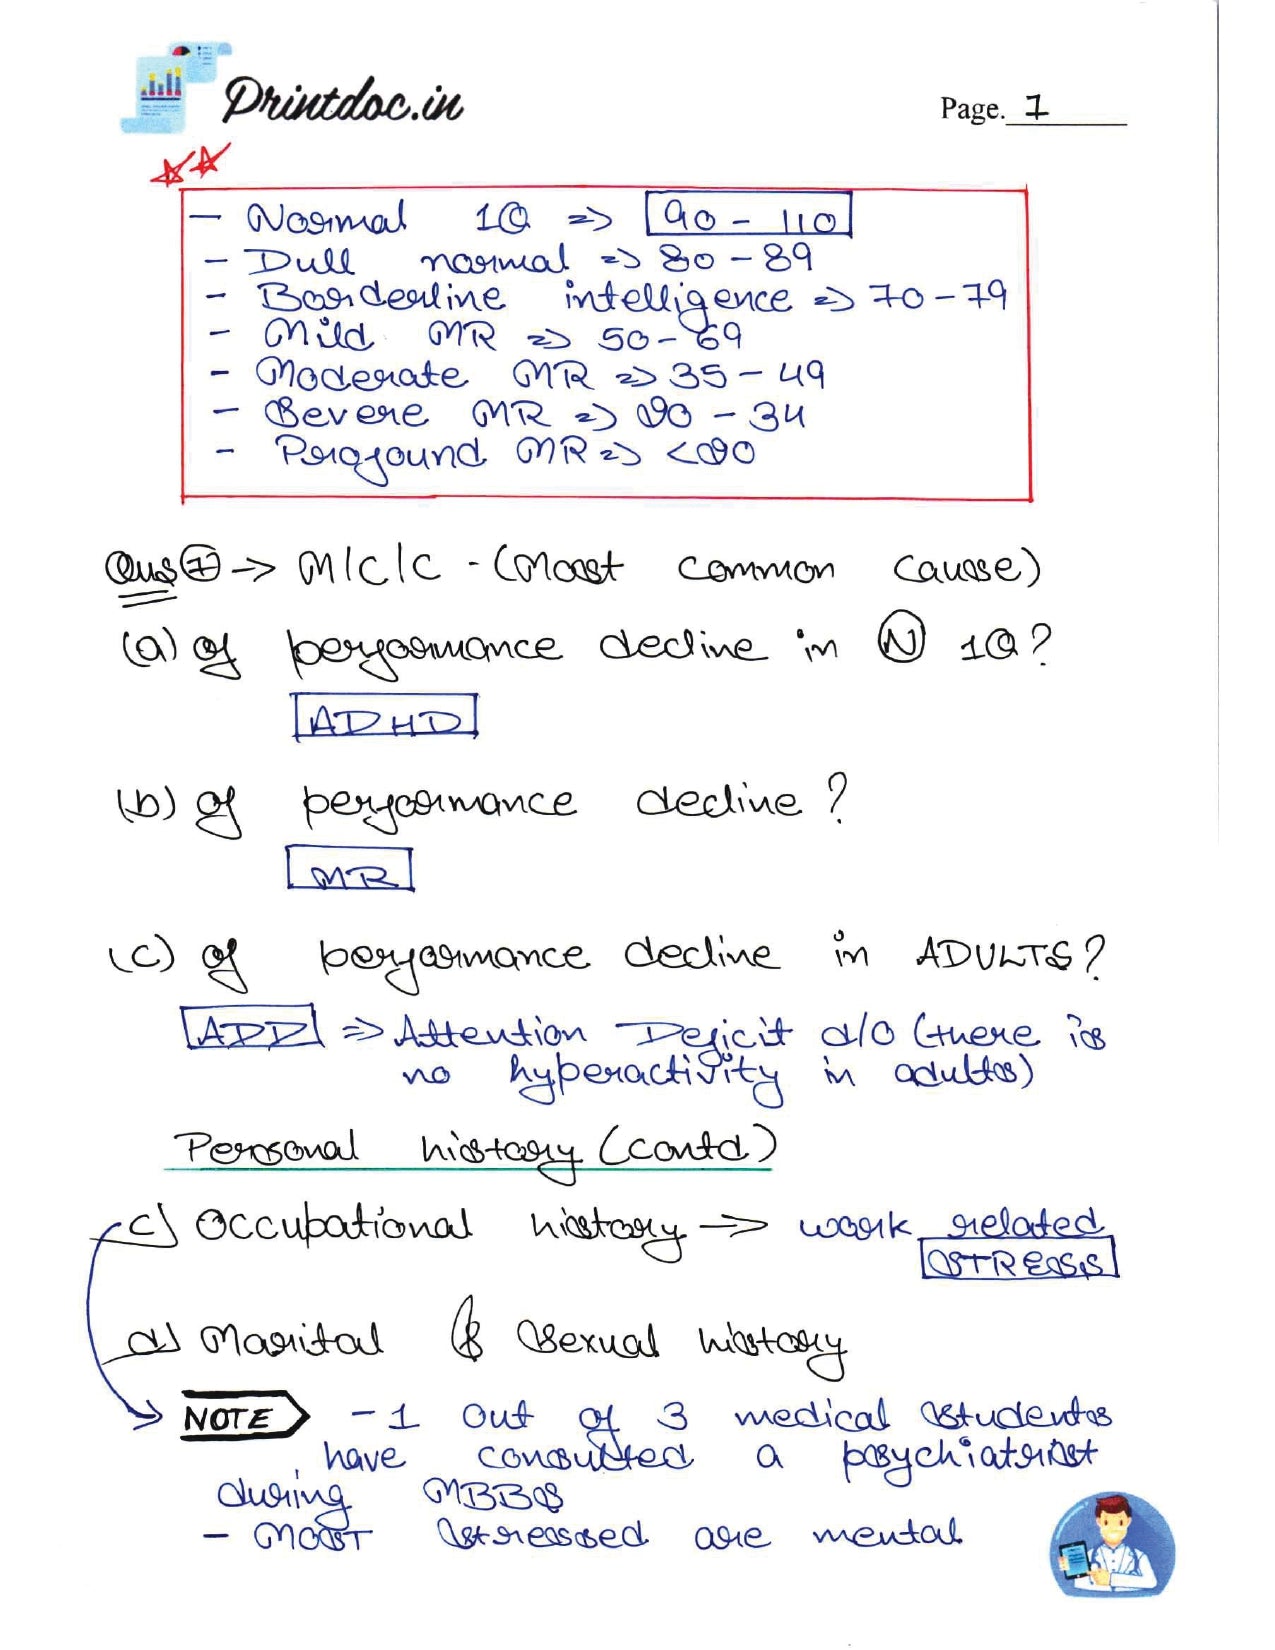 Printdoc.in
Page. 7
- Normal IQ => 90 - 110
- Dull normal => 80 - 89
- Borderline intelligence => 70 - 79
- Mild MR => 50 - 69
- Moderate MR => 35 - 49
- Severe MR => 20 - 34
- Profound MR => <20
Ques 7 → M/C/C - (Most common cause)
(a) of performance decline in N IQ?
ADHD
(b) of performance decline?
MR
(c) of performance decline in ADULTS?
ADD => Attention Deficit d/o (there is
no hyperactivity in adults)
Personal history (contd)
c) Occupational history → work related
STRESS
d) Marital & Sexual history
NOTE - 1 out of 3 medical students
have consulted a psychiatrist
during MBBS
- MOST stressed are mental